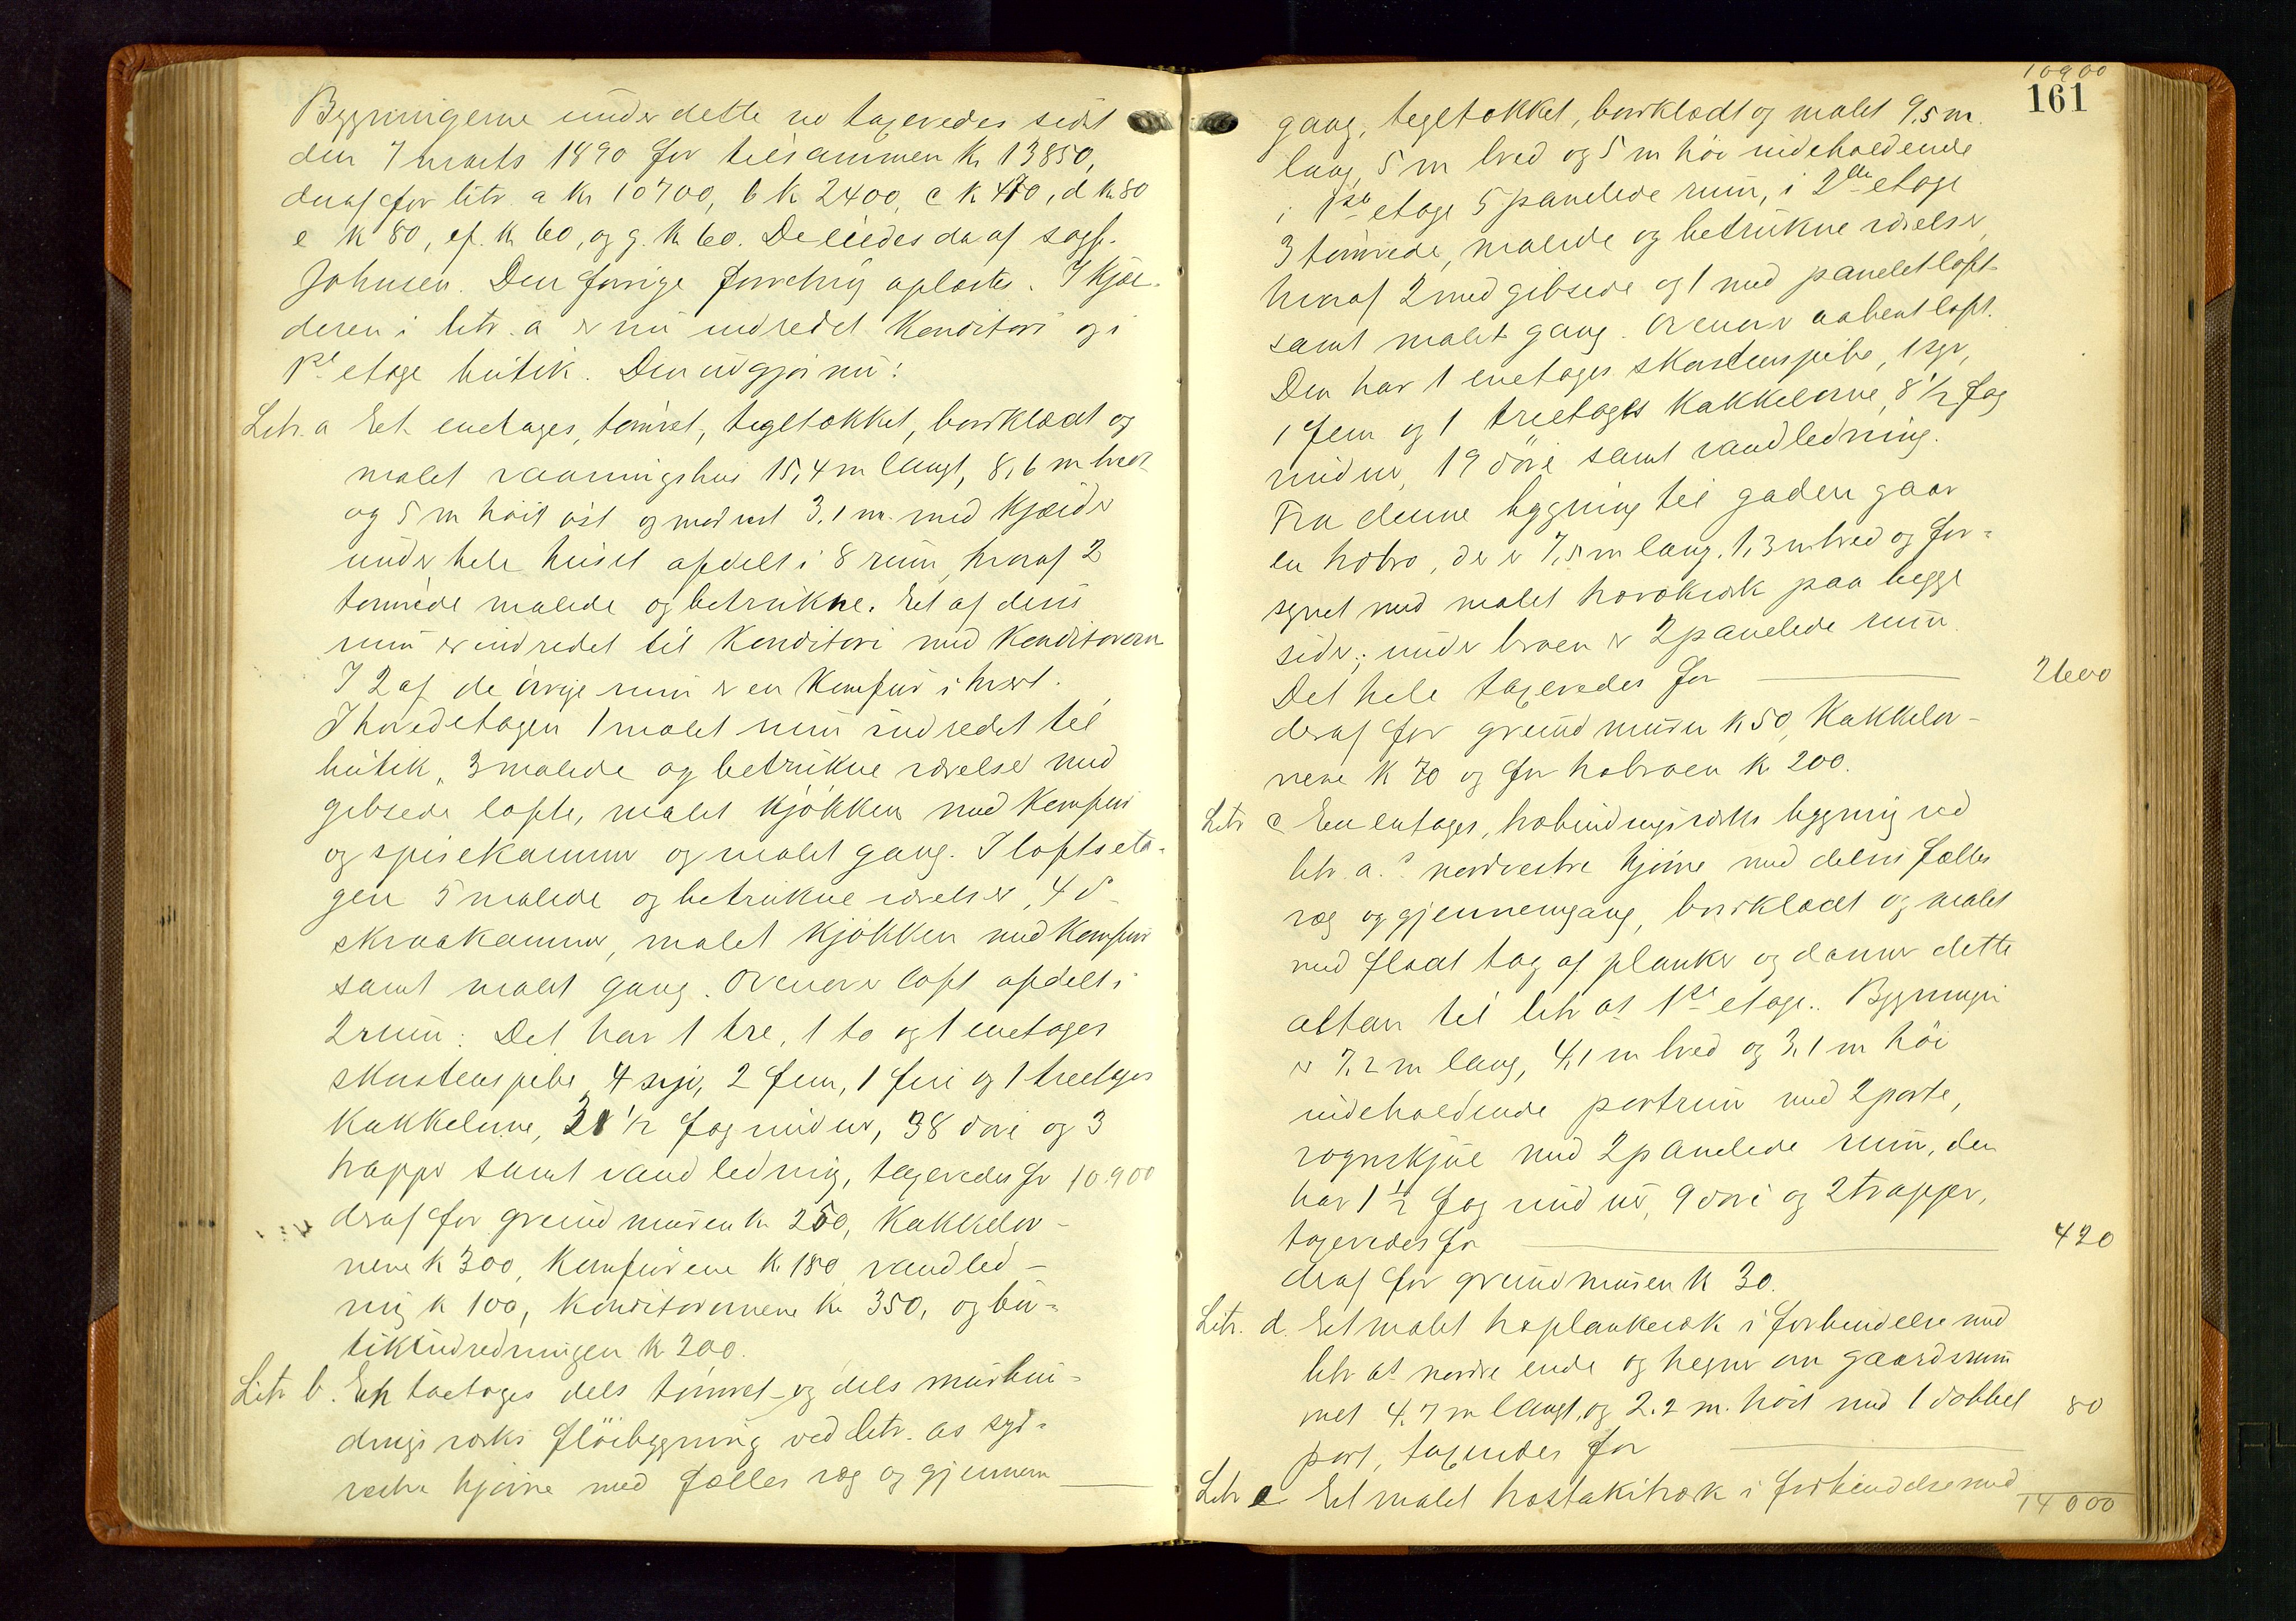 Bygningerne under dette no taxeredes sidst
den 7 marts 1890 for tilsammen Kr 13850,
deraf for litr. a Kr 10700, b K 2400, c K 470, d K 80
e K 80, f. K 60, og g. K 60. De eiedes da af sagf.
Johnsen. Den forrige forretning oplæstes. I kjæl-
deren i litr. a er nu indredet Konditori og i
1ste etage butik. Den udgjør nu:
Litr. a Et enetages, tømret, tegltækket, bordklædt og
malet vaaningshus 15,4 m langt, 8,6 m bredt
og 5 m høit øst og mod vest 3,1 m. med Kjælder
under hele huset afdelt i 8 rum, hvoraf 2
tømrede malede og betrukne. Et af disse
rum er indredet til Konditori med Konditorovn
I 2 af de øvrige rum er en Komfur i hvert.
I hovedetagen 1 malet rum indredet til
butik, 3 malede og betrukne værelser med
gibsede lofte, malet Kjøkken med Komfur
og spisekammer og malet gang. I loftseta-
gen 5 malede og betrukne værelser, 4 do
skraakammer, malet Kjøkken med Komfur
samt malet gang. Ovenover loft afdelt i
2 rum. Det har 1 tre, 1 to og 1 enetages
skorstenspibe, 4 syv, 2 fem, 1 fire og 1 treetages
Kakkelovne, 31 1/2 fag vinduer, 38 døre og 3
trapper samt vandledning, taxeredes for 10.900
deraf for grundmuren Kr 250, Kakkelov-
nene K 300, Komfurene K. 180, vandled-
ning K 100, Konditorovnene Kr 350, og bu-
tikindredningen K 200.
Litr b. En toetages dels tømret og dels murbin-
dingsværks fløibygning ved litr. as syd-
vestre hjørne med fælles væg og gjennem
10900
161
gang, tegltækket, bordklædt og malet 9,5 m.
lang, 5 m bred og 5 m høi indeholdende
i 1ste etage 5 panelede rum, i 2den etage
3 tømrede, malede og betrukne værelser,
hvoraf 2 med gibsede og 1 med panelet loft.
samt malet gang. Ovenover aabent loft.
Den har 1 enetages skorstenspibe, 1 syv,
1 fem og 1 treetages Kakkelovne, 8 1/2 fag
vinduer, 19 døre samt vandledning.
Fra denne bygning til gaden gaar
en træbro, der er 7,5 m lang, 1,3 m bred og for-
synet med malet trærækværk paa begge
sider; under broen er 2 panelede rum
Det hele taxeredes for 2600
deraf for grundmuren K 50, Kakkelov-
nene K 70 og for træbroen K 200.
Litr c En enetages, træbindingsværks bygning ved
litr. a.s nordvestre hjørne med delvis fælles
væg og gjennemgang, bordklædt og malet
med fladt tag af planker og danner dette
altan til litr as 1ste etage. Bygningen
er 7,2 m lang, 4,1 m bred og 3,1 m høi
indeholdende portrum med 2 porte,
vognskjul med 2 panelede rum, den
har 1 1/2 fag vinduer, 9 døre og 2 trapper,
taxeredes for 420
deraf for grundmuren K 30.
Litr. d. Et malet træplankeværk i forbindelse med
litr as nordre ende og hegner om gaardsrum
met 4.7 m langt, og 2.2 m. høit med 1 dobbel 80
port, taxeredes for
Litr e Et malet træstakitværk i forbindelse med
14000